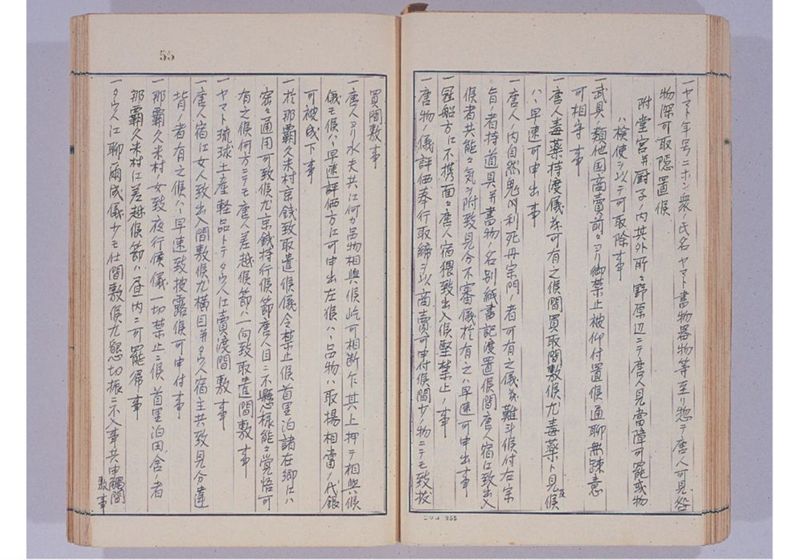 一ヤマト年号ニホン衆ノ氏名ヤマト書物器物等至リ惣テ唐人可見咎
物深可取隠置候
附堂宮并厨子ノ内共外所々野原辺ニテ唐人見当障可罷成物
ハ検使ヲ以テ可取除事
一武具ノ類他国商売前々ヨリ御禁止被仰付置候通聊無疎意
可相守事
一唐人毒薬持渡儀茲可有之候間買取間敷候尤毒薬ト見及候
ハヽ早速可申出事
一唐人ノ内自然鬼利死丹宗門ノ者可有之儀茂難斗候付右宗
旨ノ者持道具并書物ノ名別紙書記渡置候間唐人宿江致出入
候者共能々気ヲ附致見分不審儀於有之ハ早速可申出事
一冠船方ニ不携面々唐人宿猥致出入候堅禁止ノ事
一唐物ノ儀評価奉行取締ヲ以商売可申付候間少ノ物ニテモ致抜
55
買間敷事
一唐人ヨリ水夫共ニ何ガ品物相與候迚可相断乍其上押テ相與候
儀モ候ハヽ早速評価方江可申出左候ハヽ品物ハ取揚相当ノ代銀
可被成下事
一於那覇久米村京銭致取遣候儀令禁止候首里泊諸在郷江ハ
密々通用可致候尤京銭持行候節唐人目ニ不懸様能々覚悟可
有之候何方ニテモ唐人差越候節ハ一向致取遣間敷事
一ヤマト琉球土産軽品トテモ唐人江売渡間敷事
一唐人宿江女人致出入間敷候尤横目并唐人宿主共致見分違
背ノ者有之候ハヽ早速致披露候可申付事
一那覇久米村女致夜行候儀一切禁止ニ候首里泊田舎ノ者
那覇久米村江差越候節ハ昼内ニ可罷帰事
一唐人江聊爾成儀少モ仕間敷候尤懇切振ニ不入事共申聞間
敷事